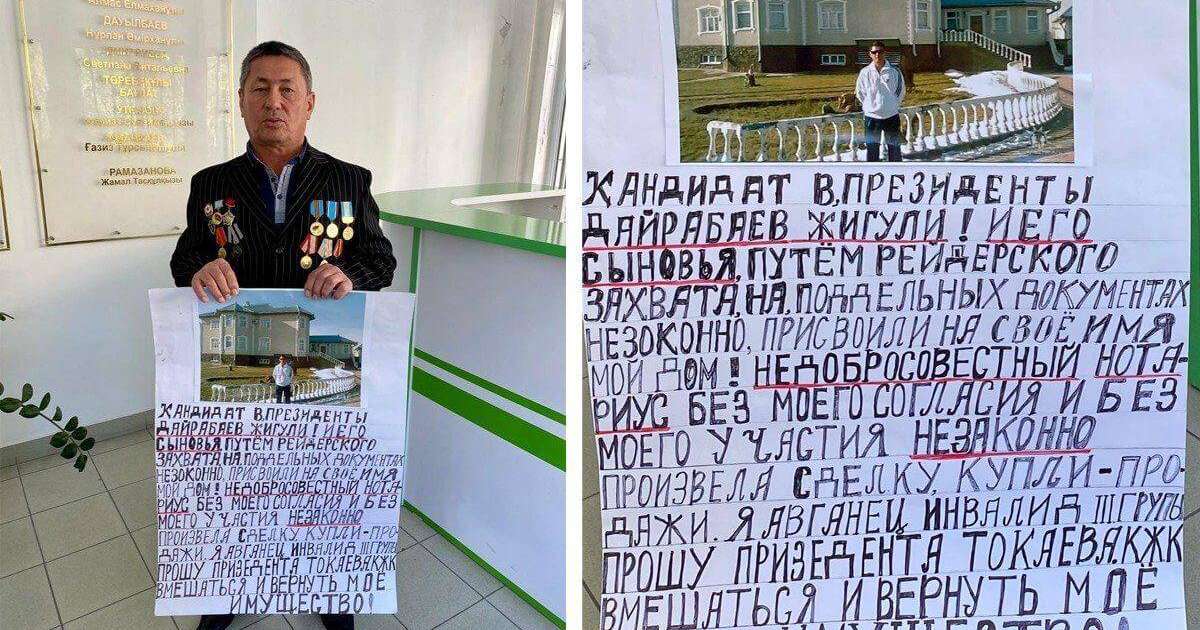 ДАУЫЛБАЕВ
Нұрлан Өмірханұлы
Светлана Витальевна
РАМАЗАНОВА
Жамал Тасқұлқызы
КАНДИДАТ В,ПРЕЗИДЕНТЫ
ДАЙРАБАЕВ ЖИГУЛИ! И ЕГО
СЫНОВЬЯ,ПУТЁМ РЕЙДЕРСКОГО
ЗАХВАТА,НА,ПОДДЕЛЬНЫХ ДОКУМЕНТАХ
НЕЗОКОННО, ПРИСВОИЛИ НА СВОЁ ИМЯ
МОЙ ДОМ! НЕДОБРОСОВЕСТНЫЙ НОТА-
РИУС БЕЗ МОЕГО СОГЛАСИЯ И БЕЗ
МОЕГО УЧАСТИЯ НЕЗАКОННО
ПРОИЗВЕЛА СДЕЛКУ, КУПЛИ-ПРО-
ДАЖИ. Я АВГАНЕЦ ИНВАЛИД III ГРУПЫ
ПРОШУ ПРИЗЕДЕНТА ТОКАЕВА.КЖК
ВМЕШАТЬСЯ И ВЕРНУТЬ МОЁ
ИМУЩЕСТВО!
КАНДИДАТ В,ПРЕЗИДЕНТЫ
ДАЙРАБАЕВ ЖИГУЛИ! И ЕГО
СЫНОВЬЯ,ПУТЁМ РЕЙДЕРСКОГО
ЗАХВАТА,НА,ПОДДЕЛЬНЫХ ДОКУМЕНТАХ
НЕЗОКОННО, ПРИСВОИЛИ НА СВОЁ ИМЯ
МОЙ ДОМ! НЕДОБРОСОВЕСТНЫЙ НОТА-
РИУС БЕЗ МОЕГО СОГЛАСИЯ И БЕЗ
МОЕГО УЧАСТИЯ НЕЗАКОННО
ПРОИЗВЕЛА СДЕЛКУ, КУПЛИ-ПРО-
ДАЖИ. Я АВГАНЕЦ ИНВАЛИД III ГРУПЫ
ПРОШУ ПРИЗЕДЕНТА ТОКАЕВА.КЖК
ВМЕШАТЬСЯ И ВЕРНУТЬ МОЁ